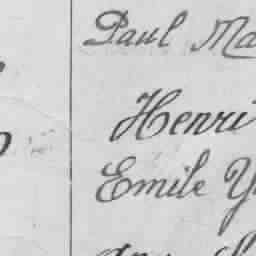 Paul Ma
Henri
Emile Y